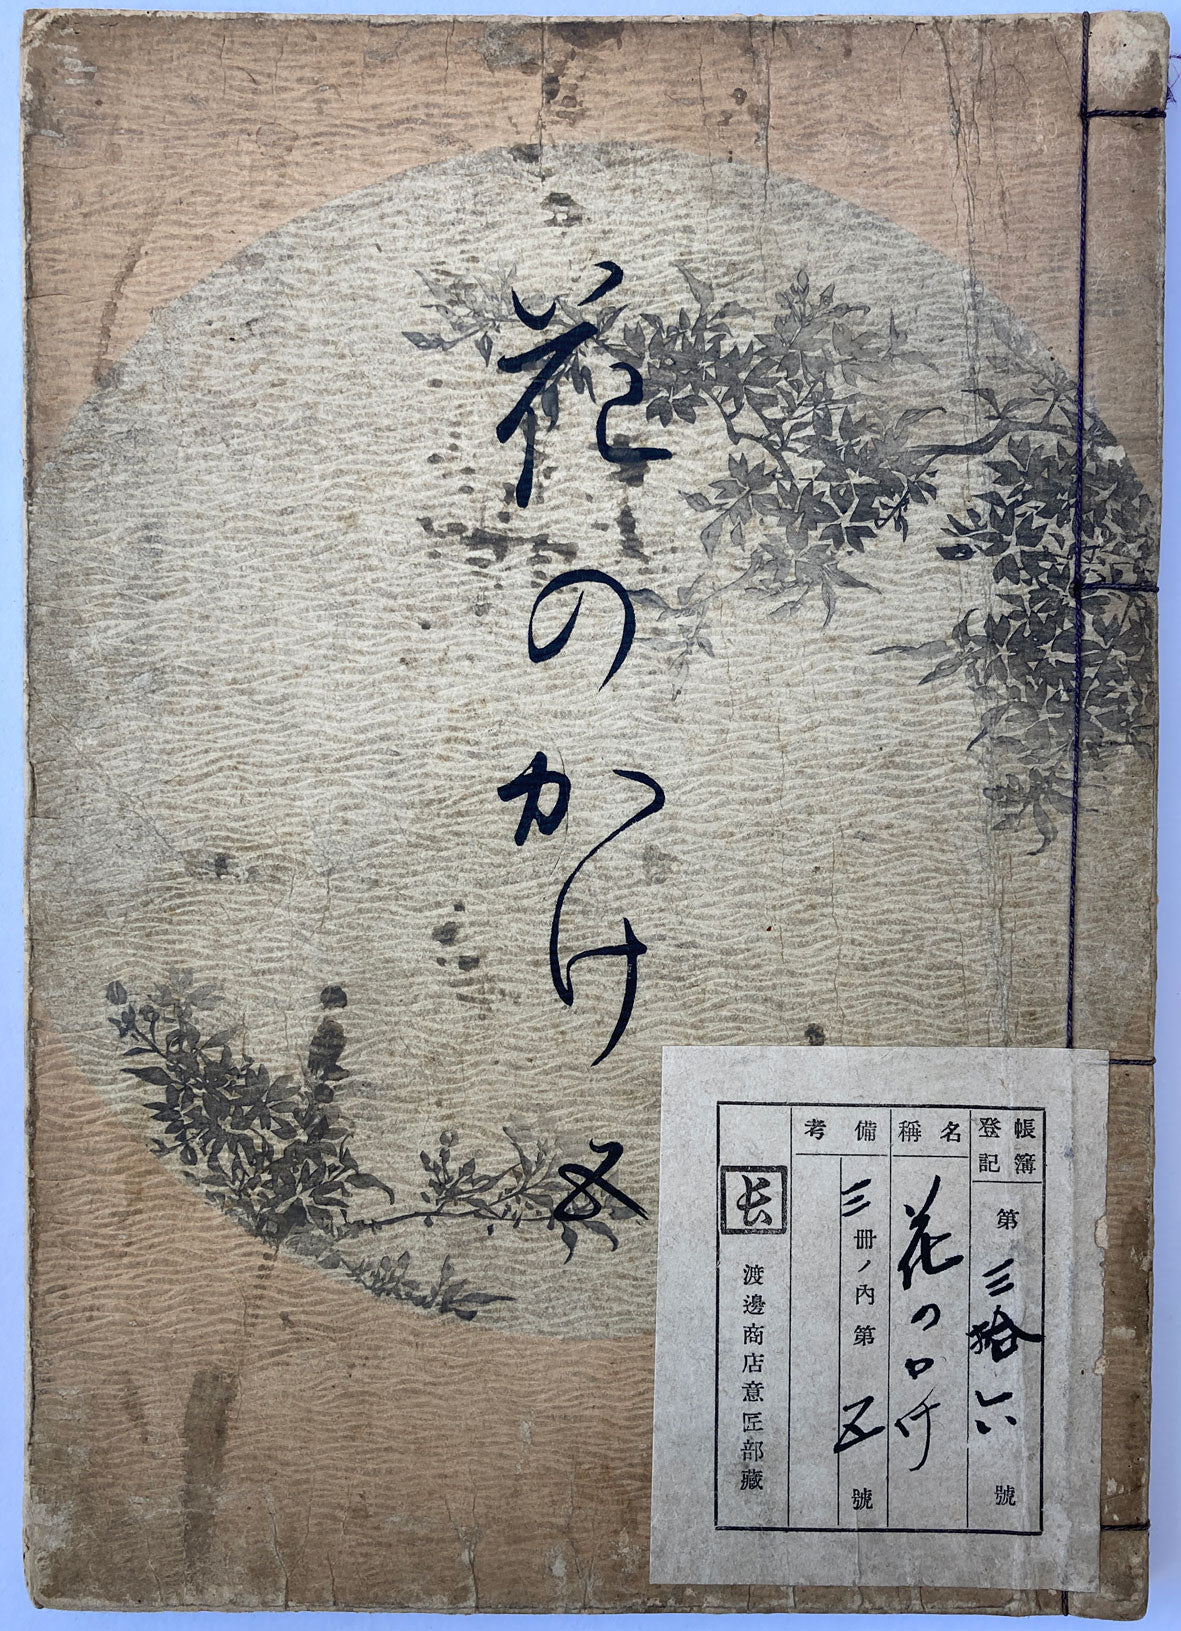 花のかけ 五
帳簿登記 第三拾六號
名稱 花のかけ
備考 三冊ノ內第五號
長
渡邊商店意匠部藏